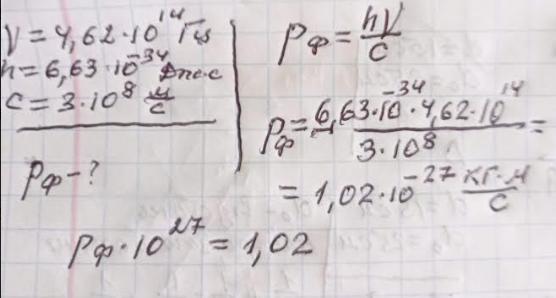 ν = 4,62·10¹⁴ Гц
h = 6,63·10⁻³⁴ Дж·с
c = 3·10⁸ м/с
pф - ?
pф = hν/c
pф = 6,63·10⁻³⁴·4,62·10¹⁴ / 3·10⁸ =
= 1,02·10⁻²⁷ кг·м/с
pф·10²⁷ = 1,02